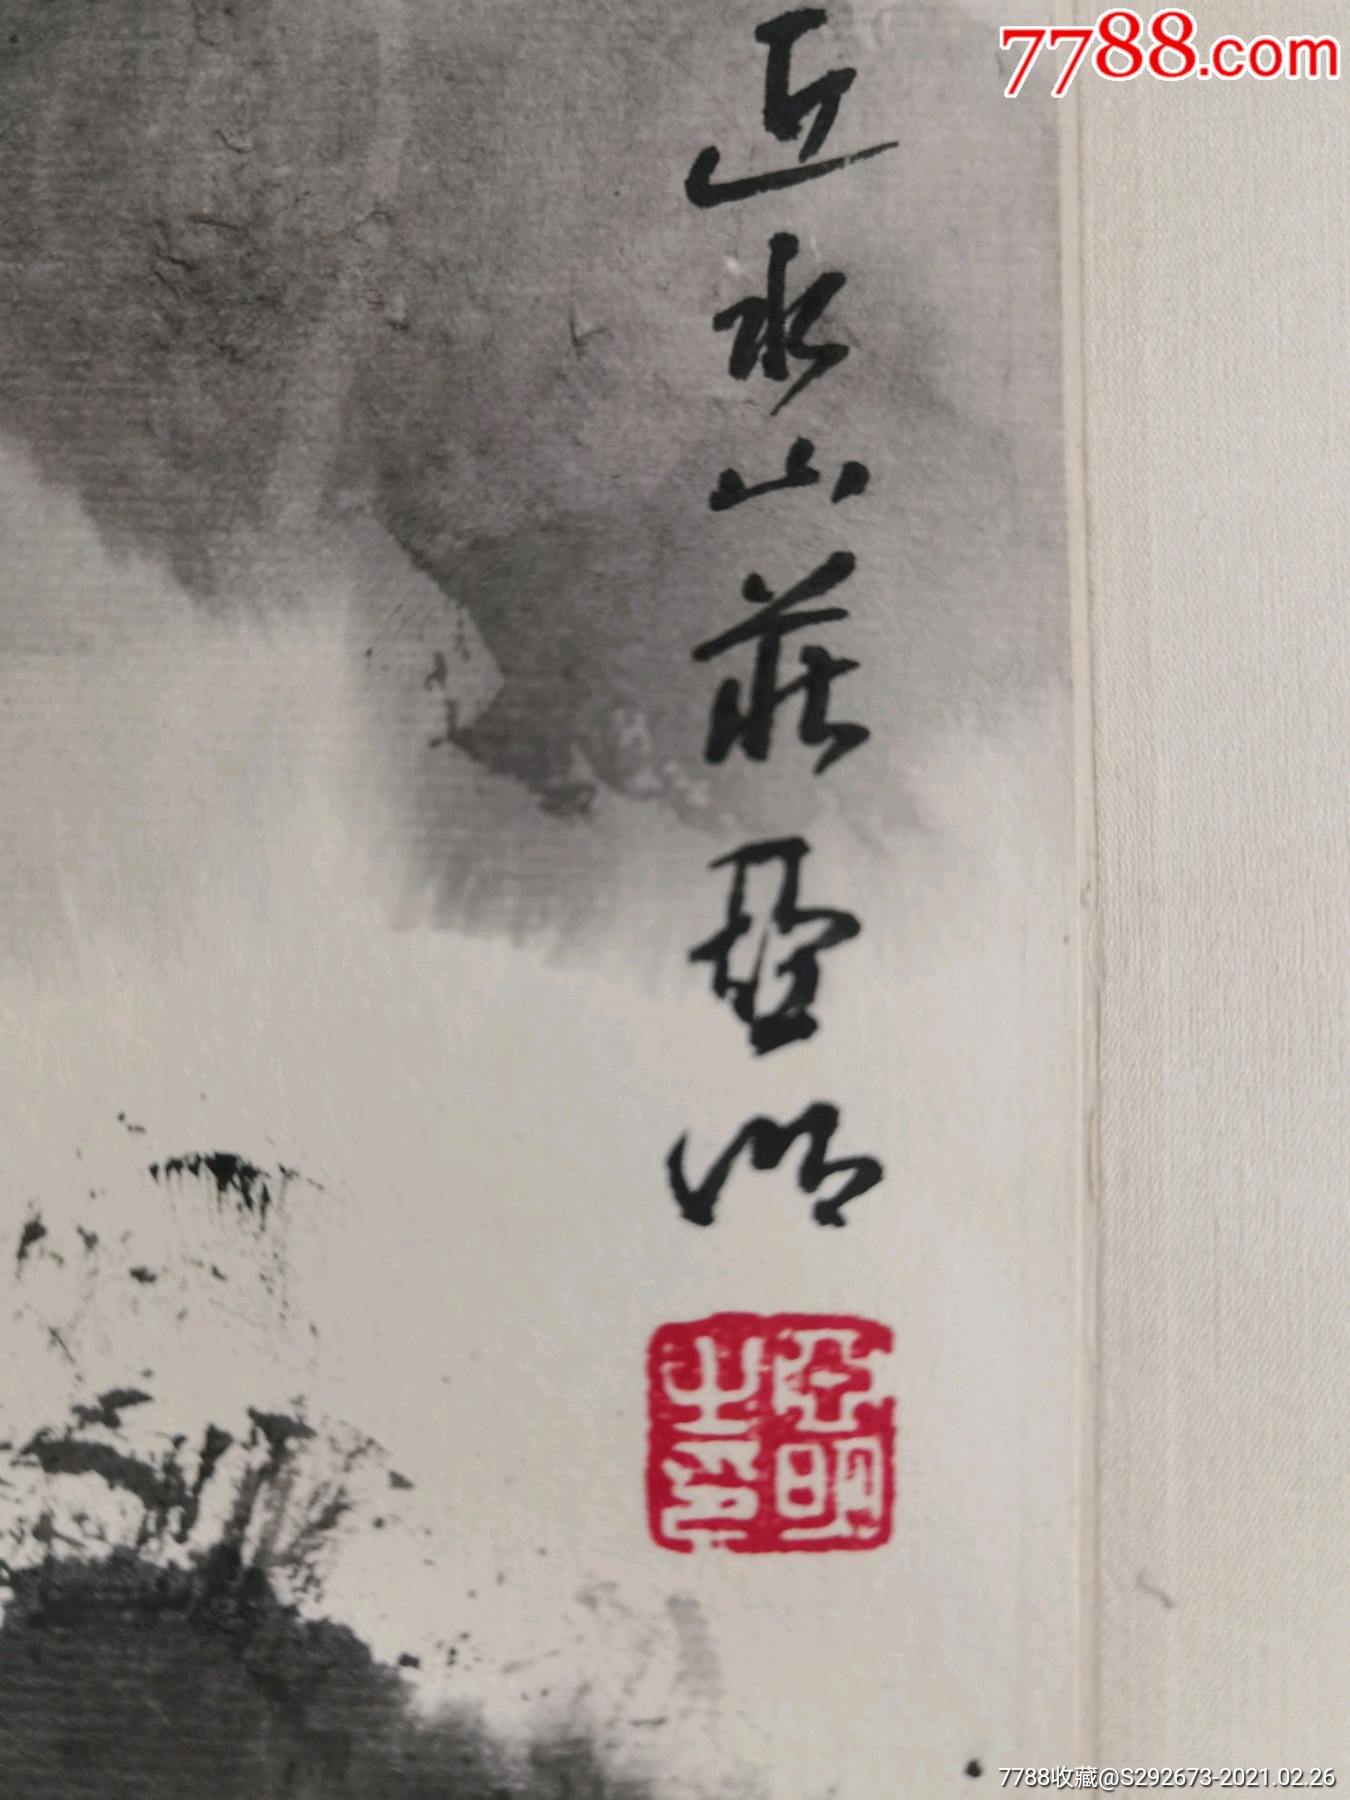 7788.com
近水山莊亞明
亞明之印
7788收藏@S292673-2021.02.26